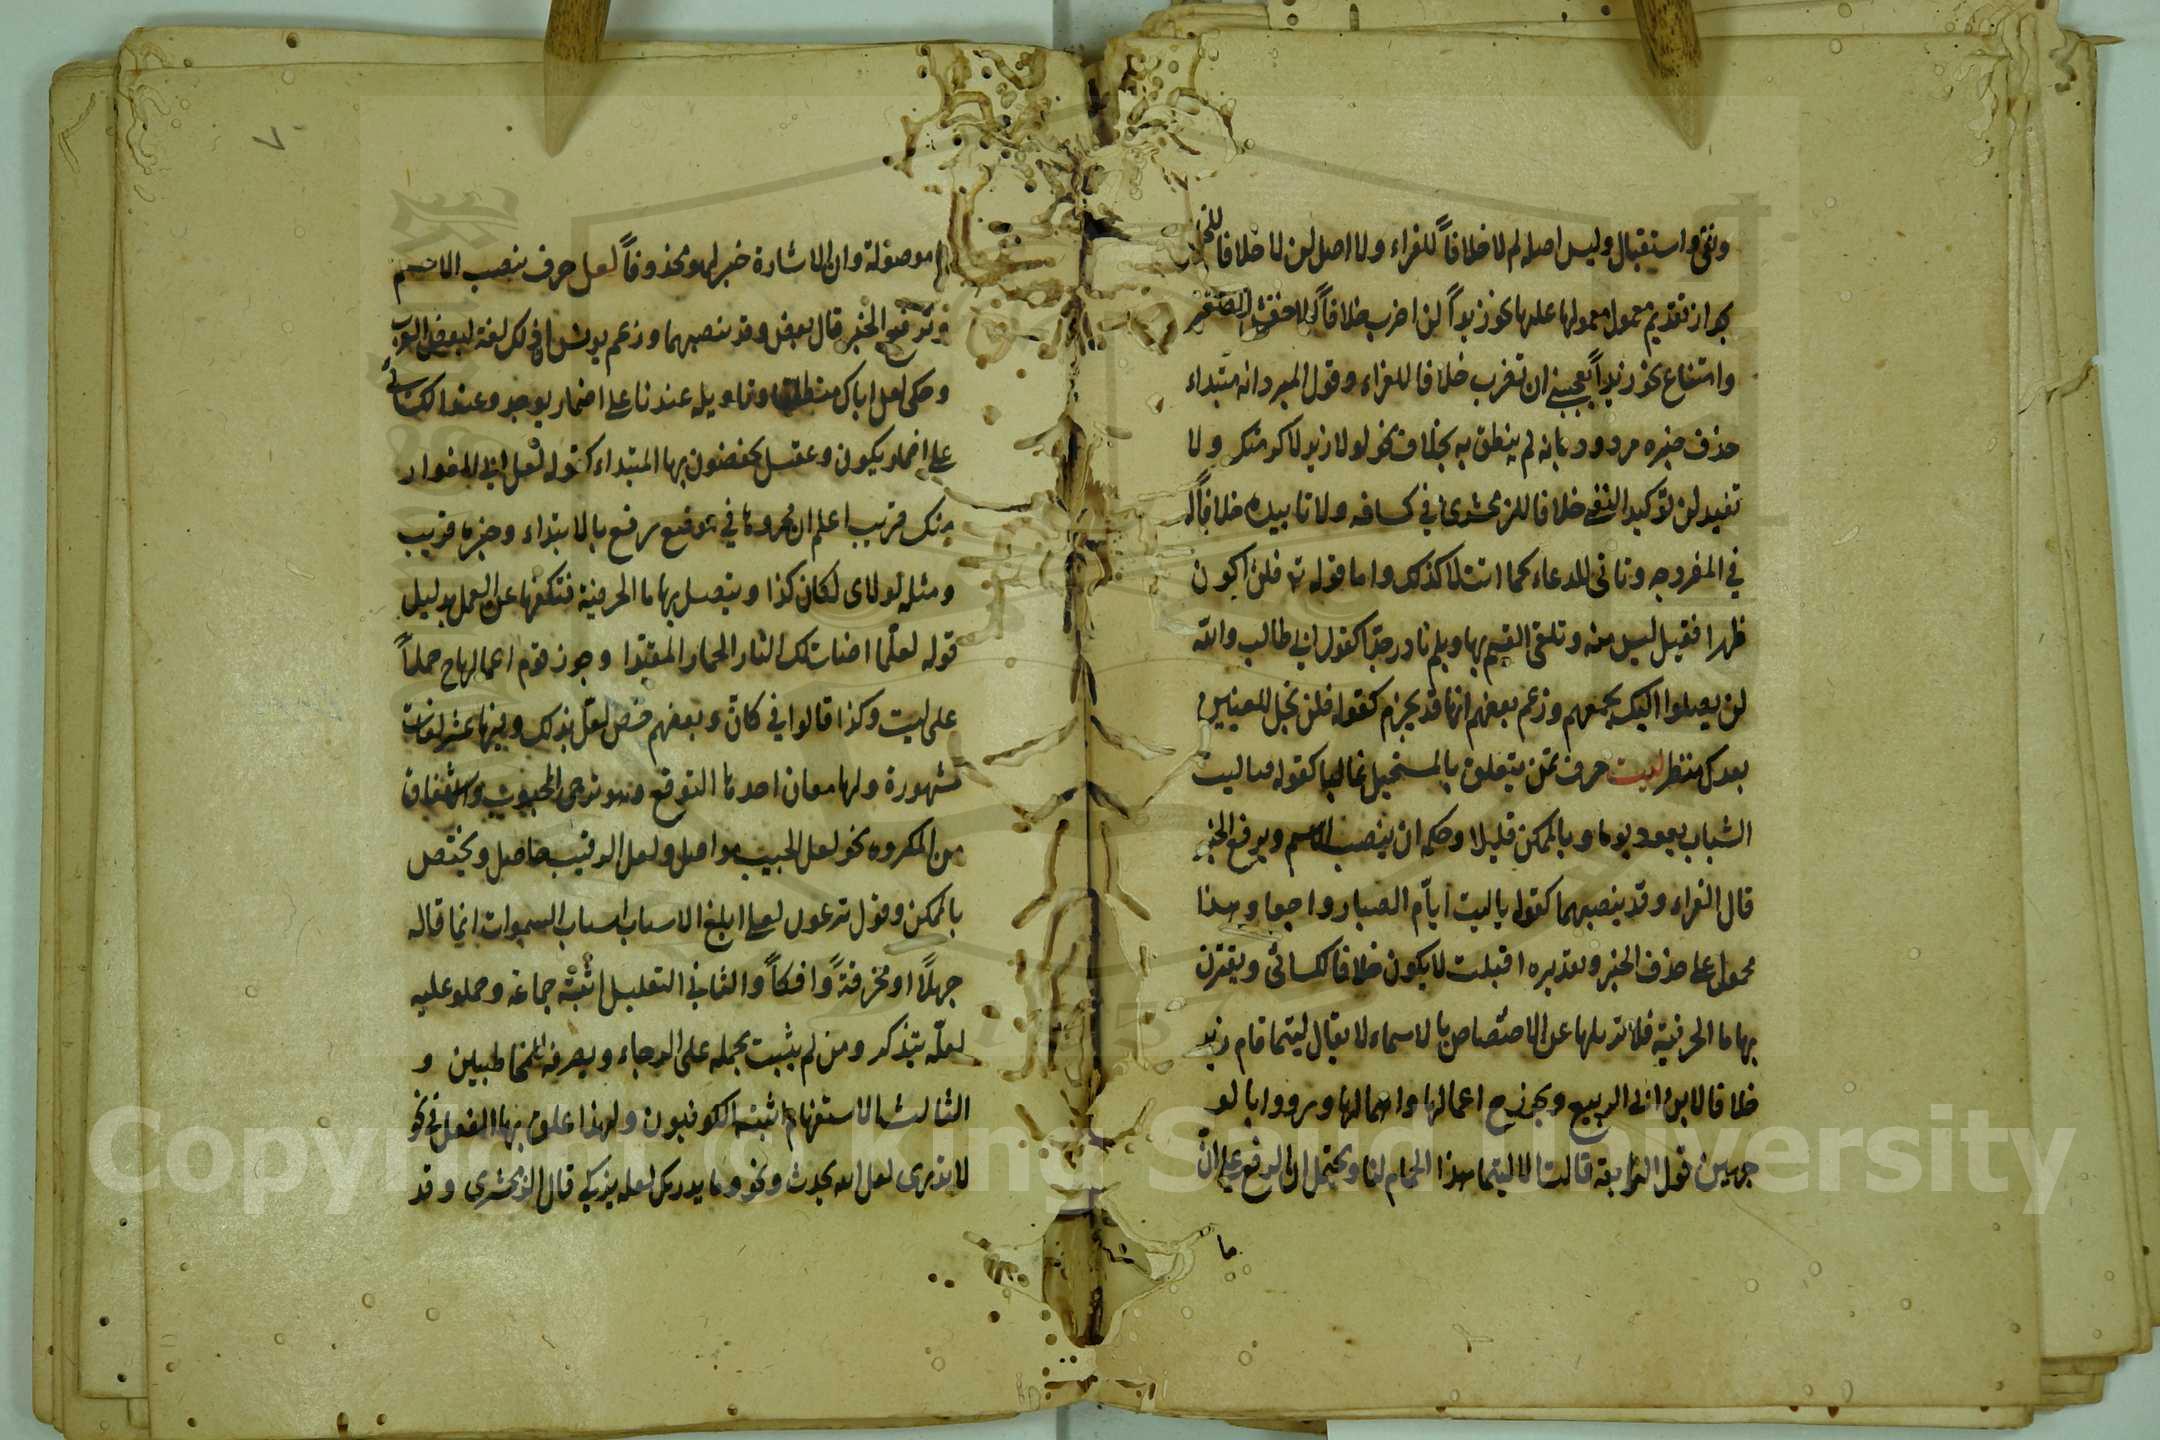 ونفي واستقبال وليس اصله لم لا خلافاً للفراء ولا اصل لن لا خلافا للخليل
بجواز تقديم معمول معمولها عليها نحو زيداً لن اضرب خلافاً للاخفش الصغير
وامتناع نحو زيداً يعجبني ان تضرب خلافا للفراء وقول المبرد انه مبتداء
حذف خبره مردود بانه لم ينطق به بخلاف نحو لولا زيد لاكرمتك ولا
تفيد لن توكيد النفي خلافا للزمخشري في كشافه ولا تابيده خلافاً له
في انموذجه وتاتي للدعاء كما اتت لا كذلك واما قوله تع فلن اكون
ظهيرا فقيل ليس منه وتلقي القسم بها وبلم نادر جدّا كقول ابي طالب والله
لن يصلوا اليك بجمعهم وزعم بعضهم انها قد يجزم كقوله فلن يحل للعينين
بعدك منظر ليت حرف تمن يتعلق بالمستحيل غالبا كقوله فيا ليت
الشباب يعود يوما وبالممكن قليلا وحكمه ان ينصب الاسم ويرفع الخبر
قال الفراء وقد ينصبهما كقوله يا ليت ايّام الصبا رواجعا وهذا
محمول على حذف الخبر وتقديره اقبلت لا يكون خلافا للكسائي ويقترن
بها ما الحرفية فلا تزيلها عن الاختصاص بالاسماء لا يقال ليتما قام زيد
خلافا لابن ابي الربيع ويجوز ح اعمالها واهمالها ورووا بالو
جهين قول النابغة قالت الا ليتما هذا الحمام لنا ويحتمل ان الرفع على انّ
ما
٧٠
ما موصولة وان الاشارة خبر لهو محذوفاً لعل حرف ينصب الاسم
وترفع الخبر قال بعض وقد ينصبهما وزعم يونس ان ذلك لغة لبعض العرب
وحكى لعل اباك منطلقا وتاويله عندنا على اضمار يوجد وعند الكسائي
على اضمار يكون وعقيل يخفضون بها المبتداء كقوله لعل ابي المغوار
منك قريب اعلم ان مجرورها في موضع رفع بالابتداء وخبره قريب
ومثله لولاي لكان كذا ويتصل بها ما الحرفية فتكفها عن العمل بدليل
قوله لعلّما اضات لك النار الحمار المقيدا وجوز قوم اعمالها ح حملاً
على ليت وكذا قالوا في كانّ وبعضهم خص لعلّ بذلك وفيها عشر لغات
مشهورة ولها معان احدها التوقع وهو ترجي المحبوب والاشفاق
من المكروه نحو لعل الحبيب مواصل ولعل الرقيب حاصل ويختص
بالممكن وقول فرعون لعلي ابلغ الاسباب اسباب السموات انما قاله
جهلاً او مخرقةً وافكاً والثاني التعليل اثبته جماعة وحملو عليه
لعلّه يتذكر ومن لم يثبت يحمله على الرجاء ويصرفه للمخاطبين و
الثالث الاستفهام اثبته الكوفيون ولهذا علق بها الفعل في نحو
لا تدري لعل الله يحدث ونحو وما يدريك لعله يزكي قال الزمخشري وقد
Copyright © King Saud University